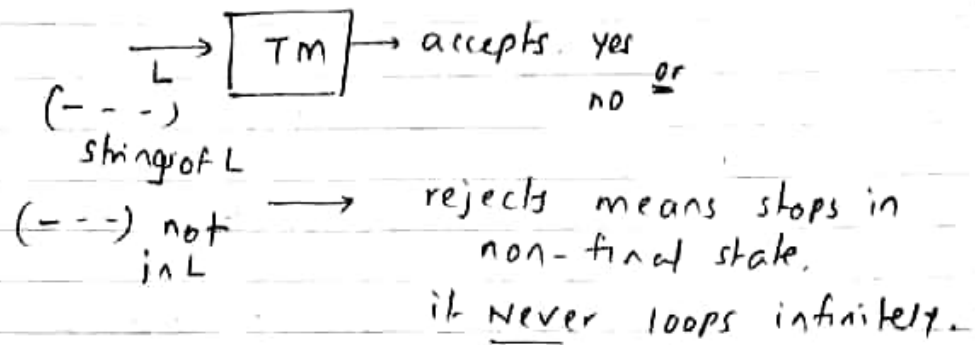 L → TM → accepts. yes or
no
(- - -)
strings of L
(- - -) not in L → rejects means stops in
non-final state.
it Never loops infinitely.